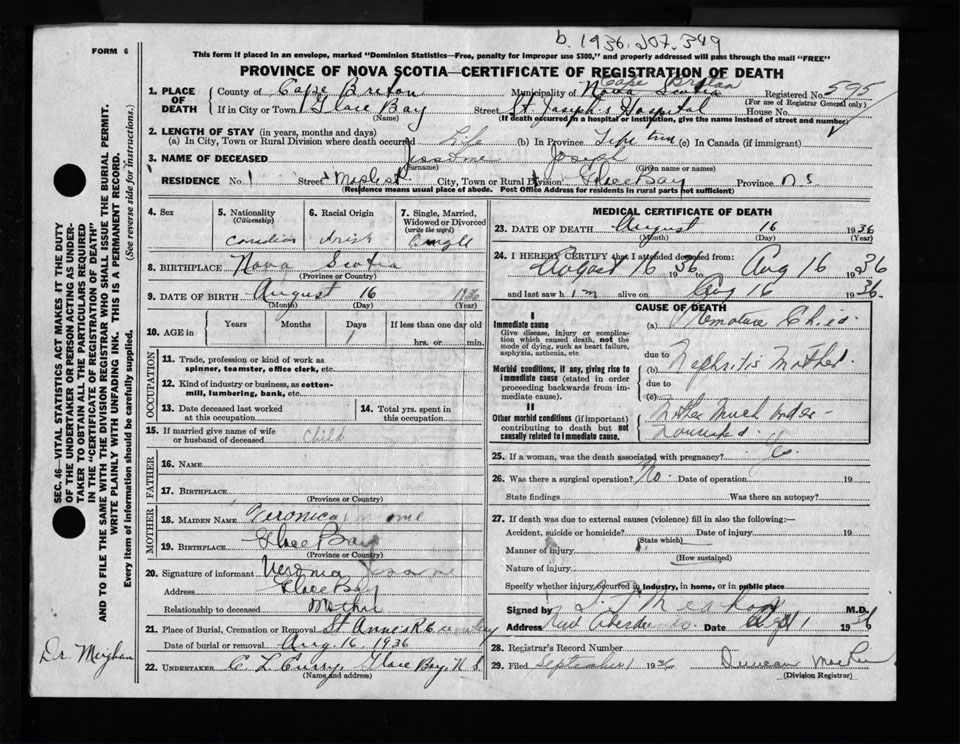 b. 1936. 207. 349
FORM 6
This form if placed in an envelope, marked "Dominion Statistics—Free, penalty for improper use $300," and properly addressed will pass through the mail "FREE"
PROVINCE OF NOVA SCOTIA—CERTIFICATE OF REGISTRATION OF DEATH
1. PLACE OF DEATH
County of Cape Breton Municipality of Cape Breton Nova Scotia Registered No. 595
(For use of Registrar General only)
If in City or Town Glace Bay Street St. Joseph's Hospital House No.
(Name) (If death occurred in a hospital or institution, give the name instead of street and number)
2. LENGTH OF STAY (in years, months and days)
(a) In City, Town or Rural Division where death occurred Life (b) In Province Life time (c) In Canada (if immigrant)
3. NAME OF DECEASED Joseph
(Surname) (Given name or names)
RESIDENCE No. 1 Street City, Town or Rural Division Glace Bay Province N.S.
(Residence means usual place of abode. Post Office Address for residents in rural parts not sufficient)
4. Sex
5. Nationality (Citizenship) Canadian
6. Racial Origin Irish
7. Single, Married, Widowed or Divorced (write the word) Single
8. BIRTHPLACE Nova Scotia
(Province or Country)
9. DATE OF BIRTH August 16 1936
(Month) (Day) (Year)
10. AGE in Years Months Days If less than one day old
1 hrs. or min.
OCCUPATION
11. Trade, profession or kind of work as spinner, teamster, office clerk, etc.
12. Kind of industry or business, as cotton-mill, lumbering, bank, etc.
13. Date deceased last worked at this occupation
14. Total yrs. spent in this occupation
15. If married give name of wife or husband of deceased Child
FATHER
16. NAME
17. BIRTHPLACE
(Province or Country)
MOTHER
18. MAIDEN NAME Veronica
19. BIRTHPLACE Glace Bay
(Province or Country)
20. Signature of informant
Address Glace Bay
Relationship to deceased Mother
21. Place of Burial, Cremation or Removal St Anne's R.C. Cemetery
Date of burial or removal Aug. 16, 1936
22. UNDERTAKER C. L. Curry, Glace Bay, N.S.
(Name and address)
MEDICAL CERTIFICATE OF DEATH
23. DATE OF DEATH August 16 1936
(Month) (Day) (Year)
24. I HEREBY CERTIFY that I attended deceased from:
August 16 1936 to Aug 16 1936
and last saw him alive on Aug 16 1936.
CAUSE OF DEATH
I
Immediate cause
Give disease, injury or complication which caused death, not the mode of dying, such as heart failure, asphyxia, asthenia, etc
(a) Premature Child
due to
Morbid conditions, if any, giving rise to immediate cause (stated in order proceeding backwards from immediate cause).
(b) Nephritis Mother
due to
(c)
II
Other morbid conditions (if important) contributing to death but not causally related to immediate cause.
Mother much under-
nourished.
25. If a woman, was the death associated with pregnancy?
26. Was there a surgical operation? No. Date of operation 19
State findings Was there an autopsy?
27. If death was due to external causes (violence) fill in also the following:—
Accident, suicide or homicide? Date of injury 19
(State which)
Manner of injury
(How sustained)
Nature of injury
Specify whether injury occurred in industry, in home, or in public place
Signed by M.D.
Address New Aberdeen Date 1936
28. Registrar's Record Number
29. Filed September 1 1936 Duncan
(Division Registrar)
SEC. 46—VITAL STATISTICS ACT MAKES IT THE DUTY
OF THE UNDERTAKER OR PERSON ACTING AS UNDER-
TAKER TO OBTAIN ALL THE PARTICULARS REQUIRED
IN THE "CERTIFICATE OF REGISTRATION OF DEATH"
AND TO FILE THE SAME WITH THE DIVISION REGISTRAR WHO SHALL ISSUE THE BURIAL PERMIT.
WRITE PLAINLY WITH UNFADING INK. THIS IS A PERMANENT RECORD.
Every item of information should be carefully supplied. (See reverse side for instructions.)
Dr. Meighan